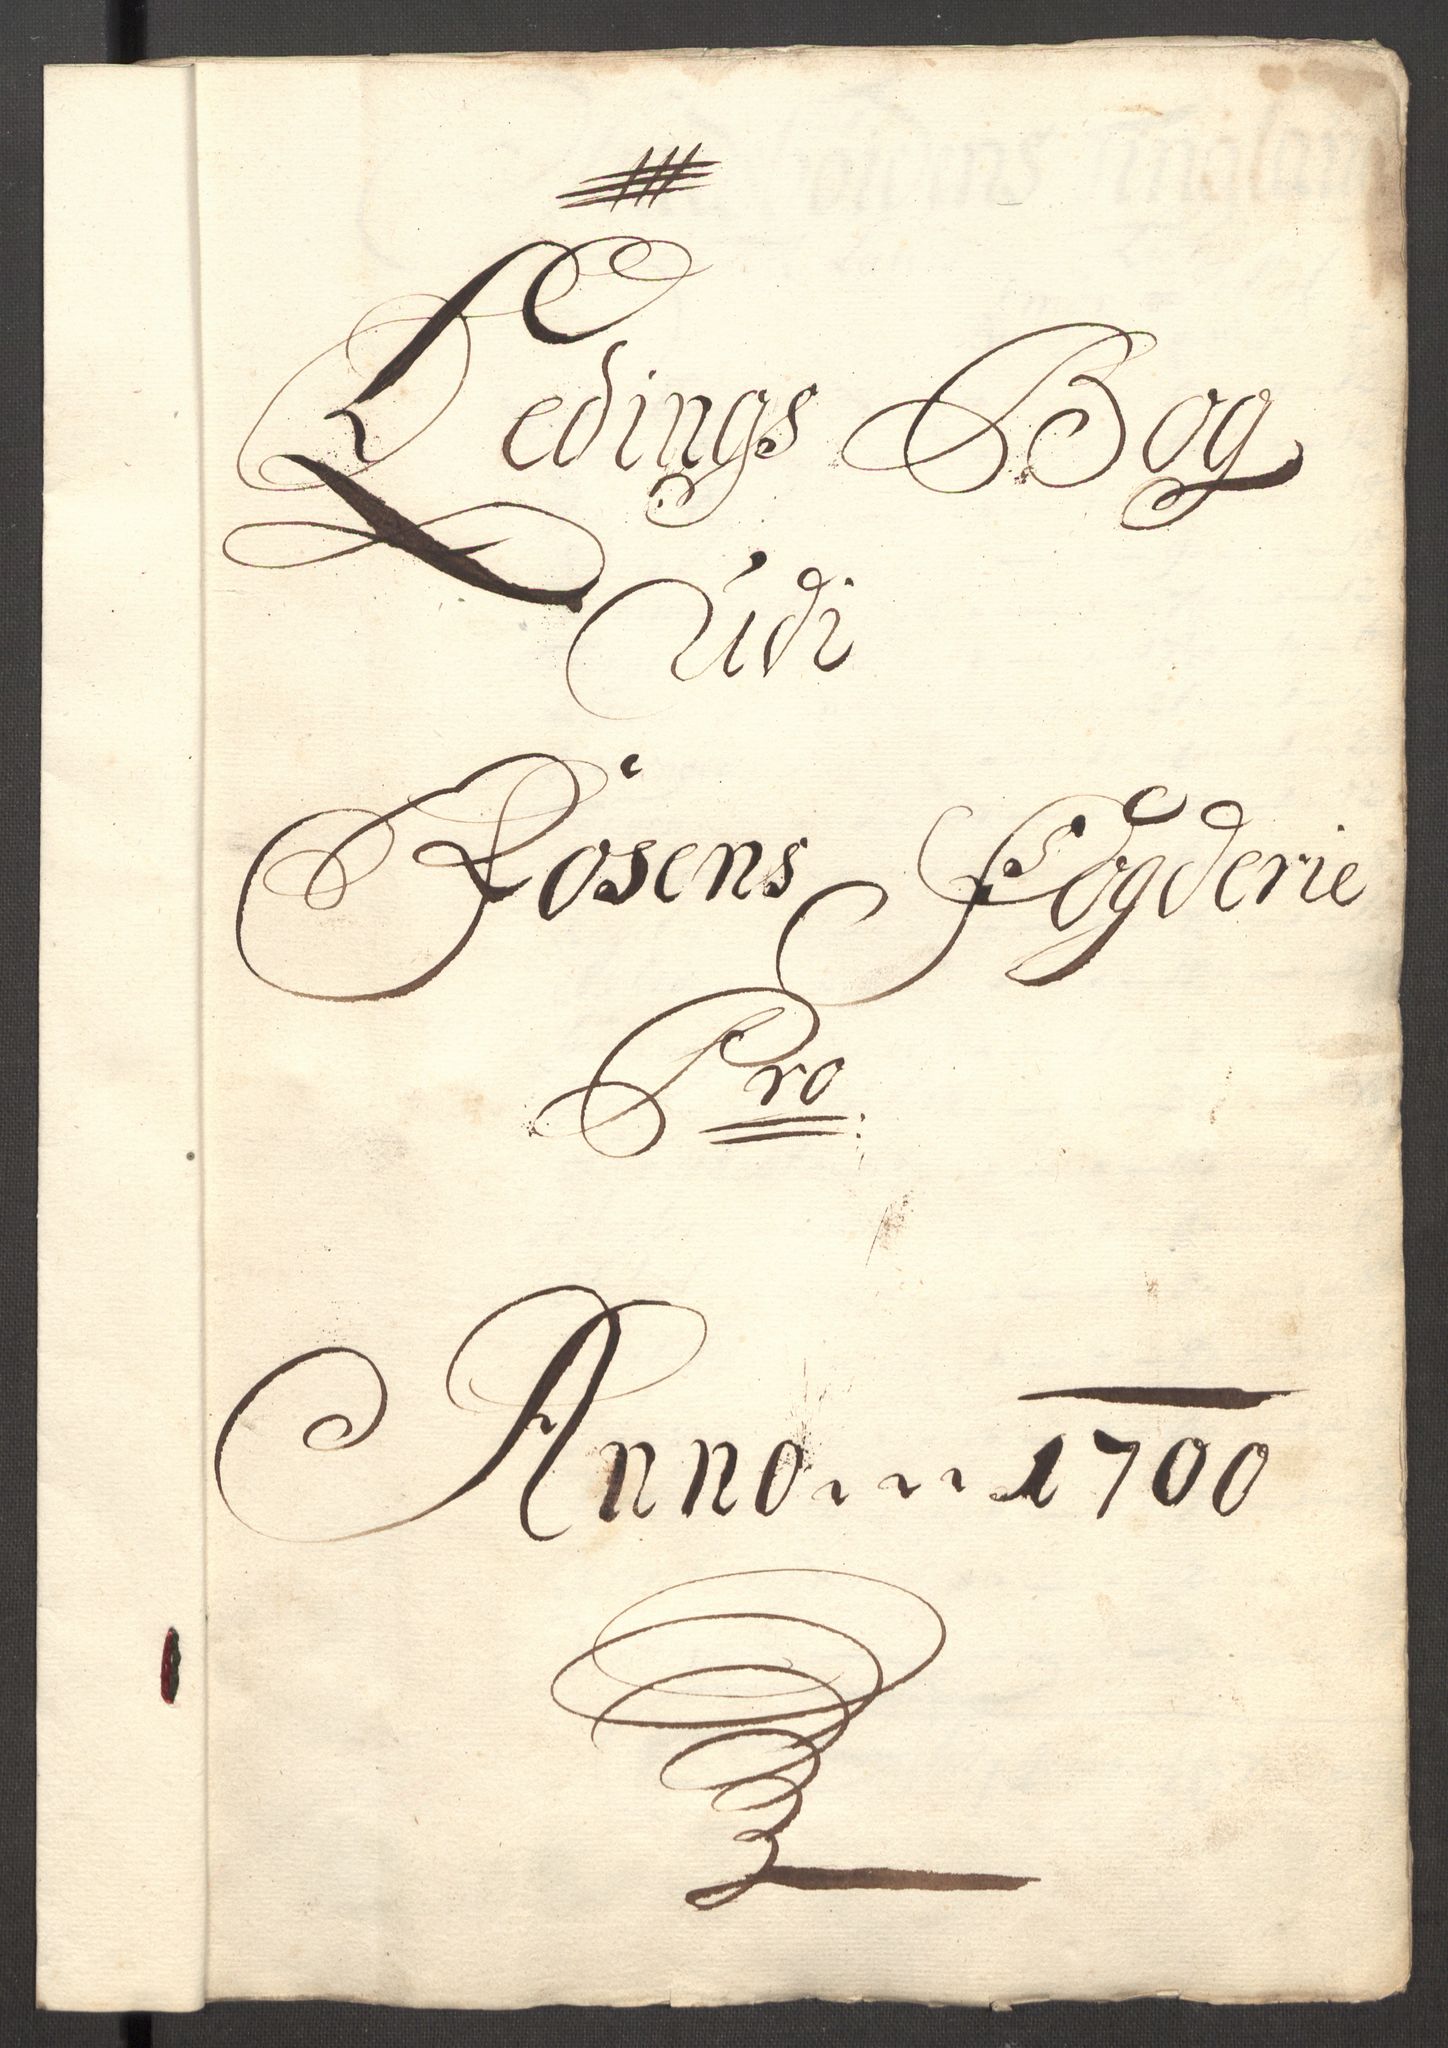 Ledings Bog
Udi
Rosens Fogderie
Pro
Anno 1700